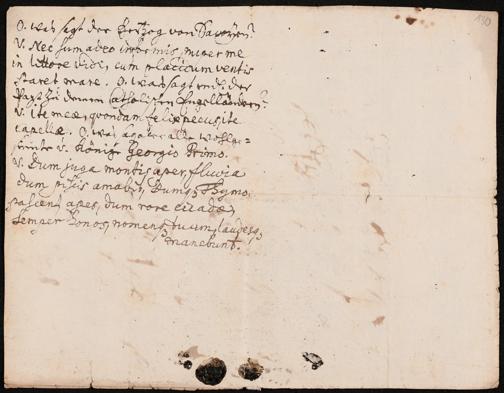 130
O. was sagt der Hertzog von Savoyen?
V. Nec sum adeo informis, nuper me
in littore vidi, cum placidum ventis
staret mare. O. was sagt endl. der
Papst zu denen Catholischen Engelländern?
V. ite meae, quondam felix pecus, ite
capellae. O. was aber alle wohlge-
sinnte v. König Georgio Primo.
V. Dum juga montis aper, fluvia
dum piscis amabit, Dumq3 Thymo
pascent apes, dum rore cicadae,
Semper honos, nomenq3 tuum, laudesq3
manebunt.